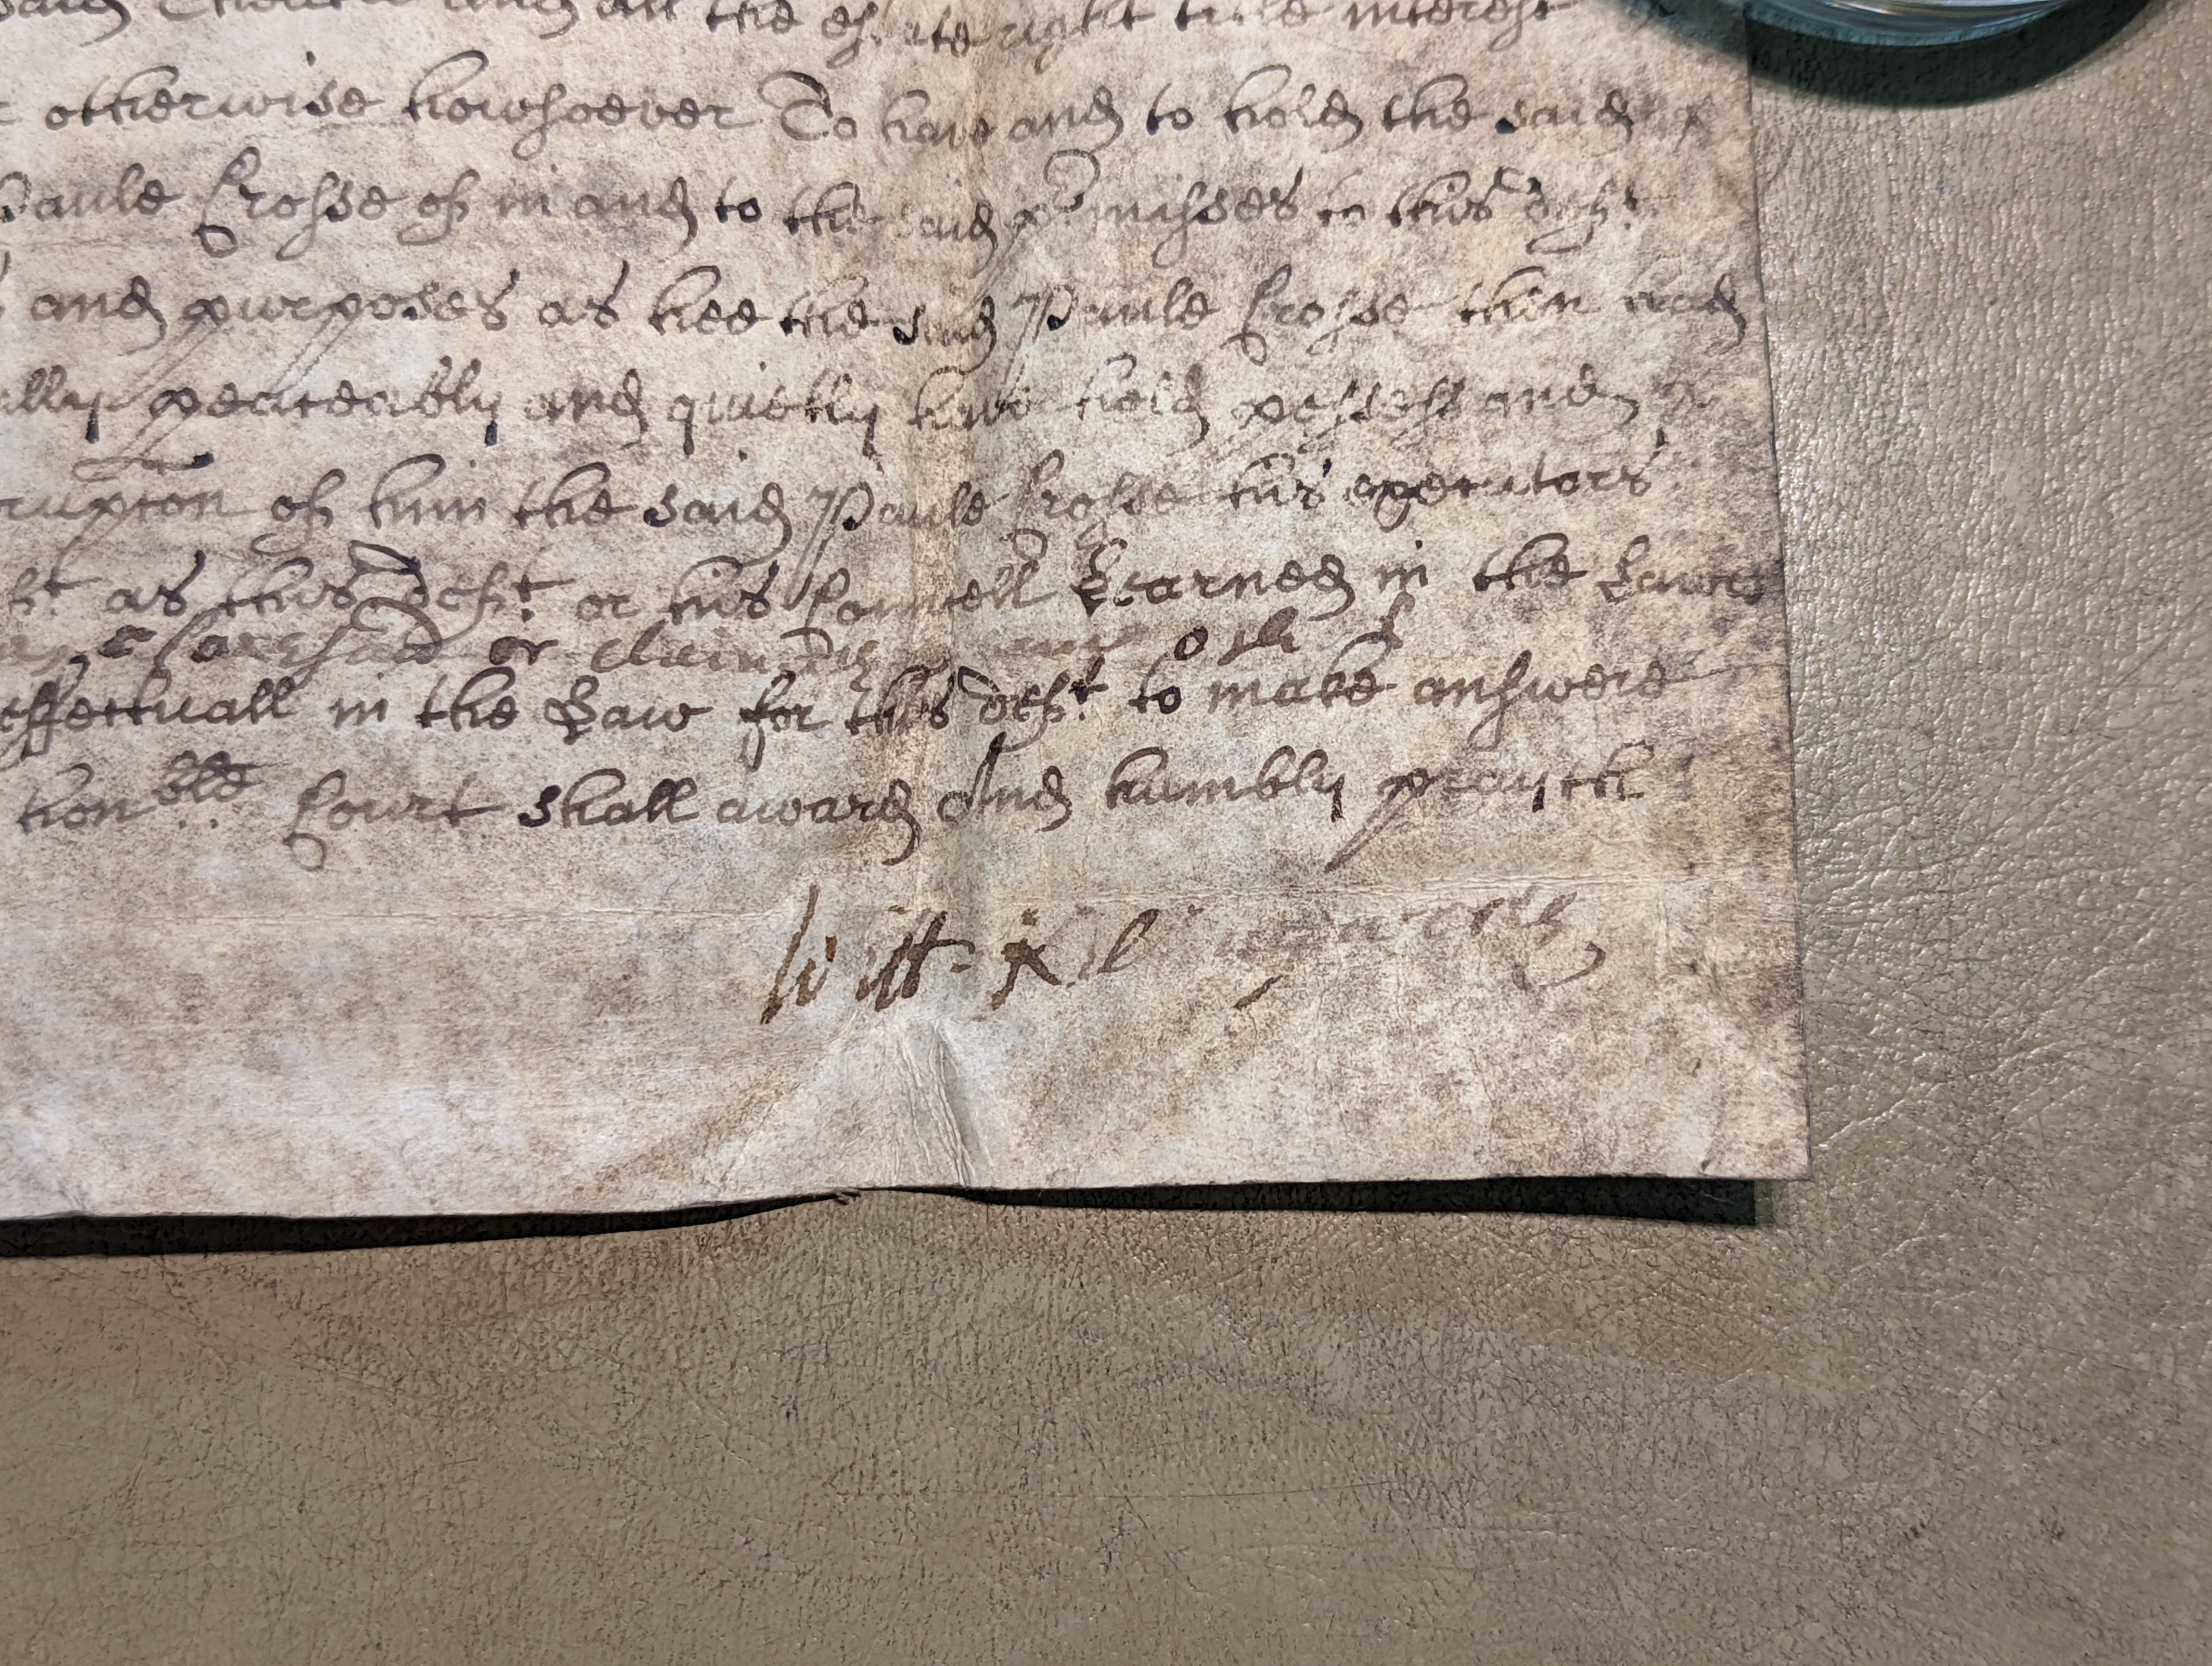 said and all the estate right title interest
otherwise howsoever To have and to hold the said
Paule Crosse of in and to the said p^rmisses to this def^t
and purposes as hee the said Paule Crosse then had
peaceably and quietly have hold possess and
of him the said Paule Crosse his executors
as this def^t or his Councell Learned in the Lawes
or claim
effectuall in the Law for this def^t to make answere
hon^ble Court shall award And humbly prayeth
Will